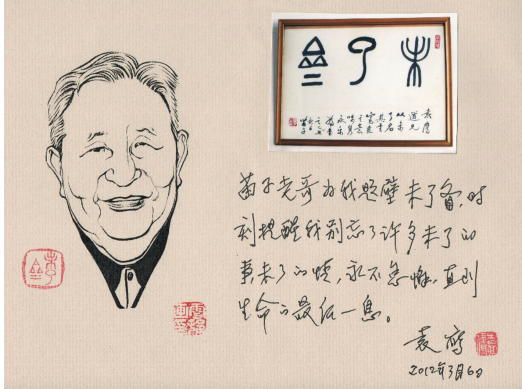 未了斋
袁鹰
道兄
以未
了名
其书
苗子老哥为我题壁未了斋,时
刻提醒我别忘了许多未了的
事未了的情,永不怠懈,直到
生命的最后一息。
袁鹰
2012年3月6日